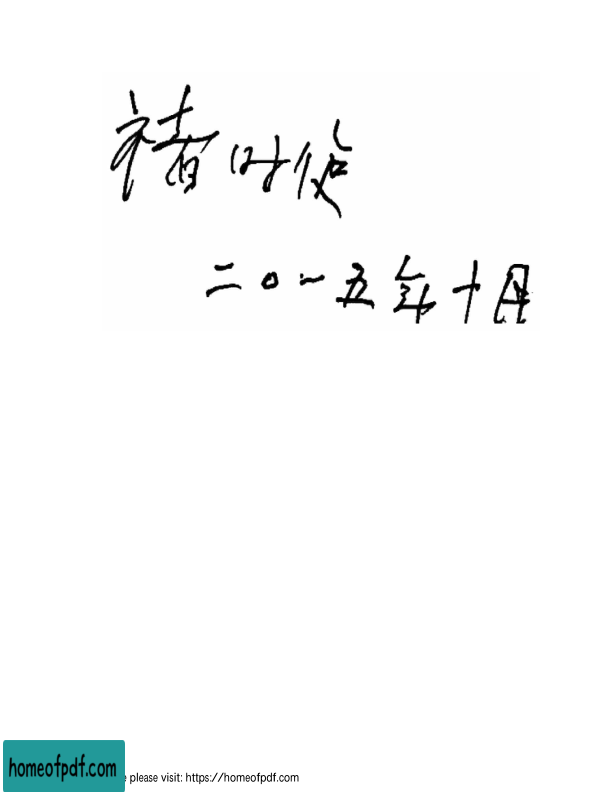 褚时健
二〇一五年十月
homeofpdf.com
please visit: https://homeofpdf.com